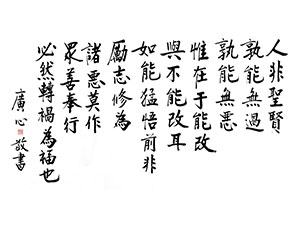 人非聖賢
孰能無過
孰能無惡
惟在于能改
與不能改耳
如能猛悟前非
勵志修為
諸惡莫作
眾善奉行
必然轉禍為福也
廣心敬書